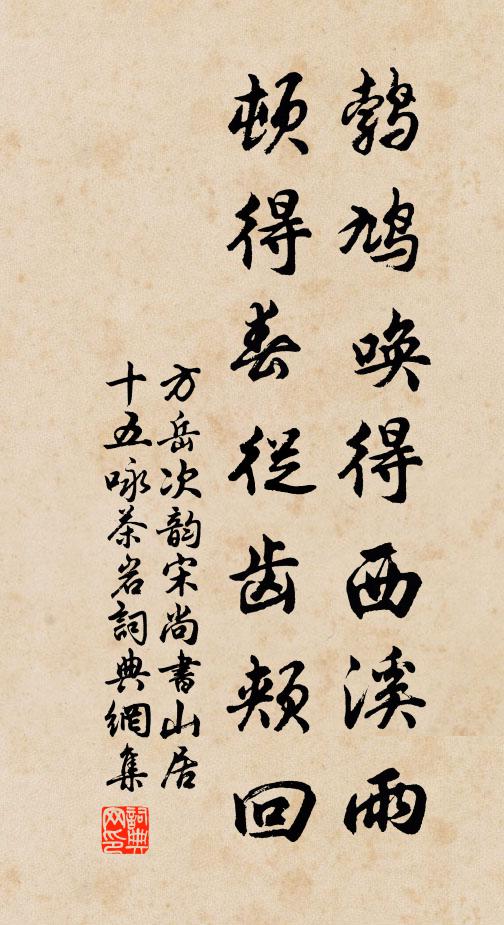 鹁鸠唤得西溪雨
顿得春从齿颊回
方岳次韵宋尚書山居
十五咏茶岩詞典網集
詞典网印